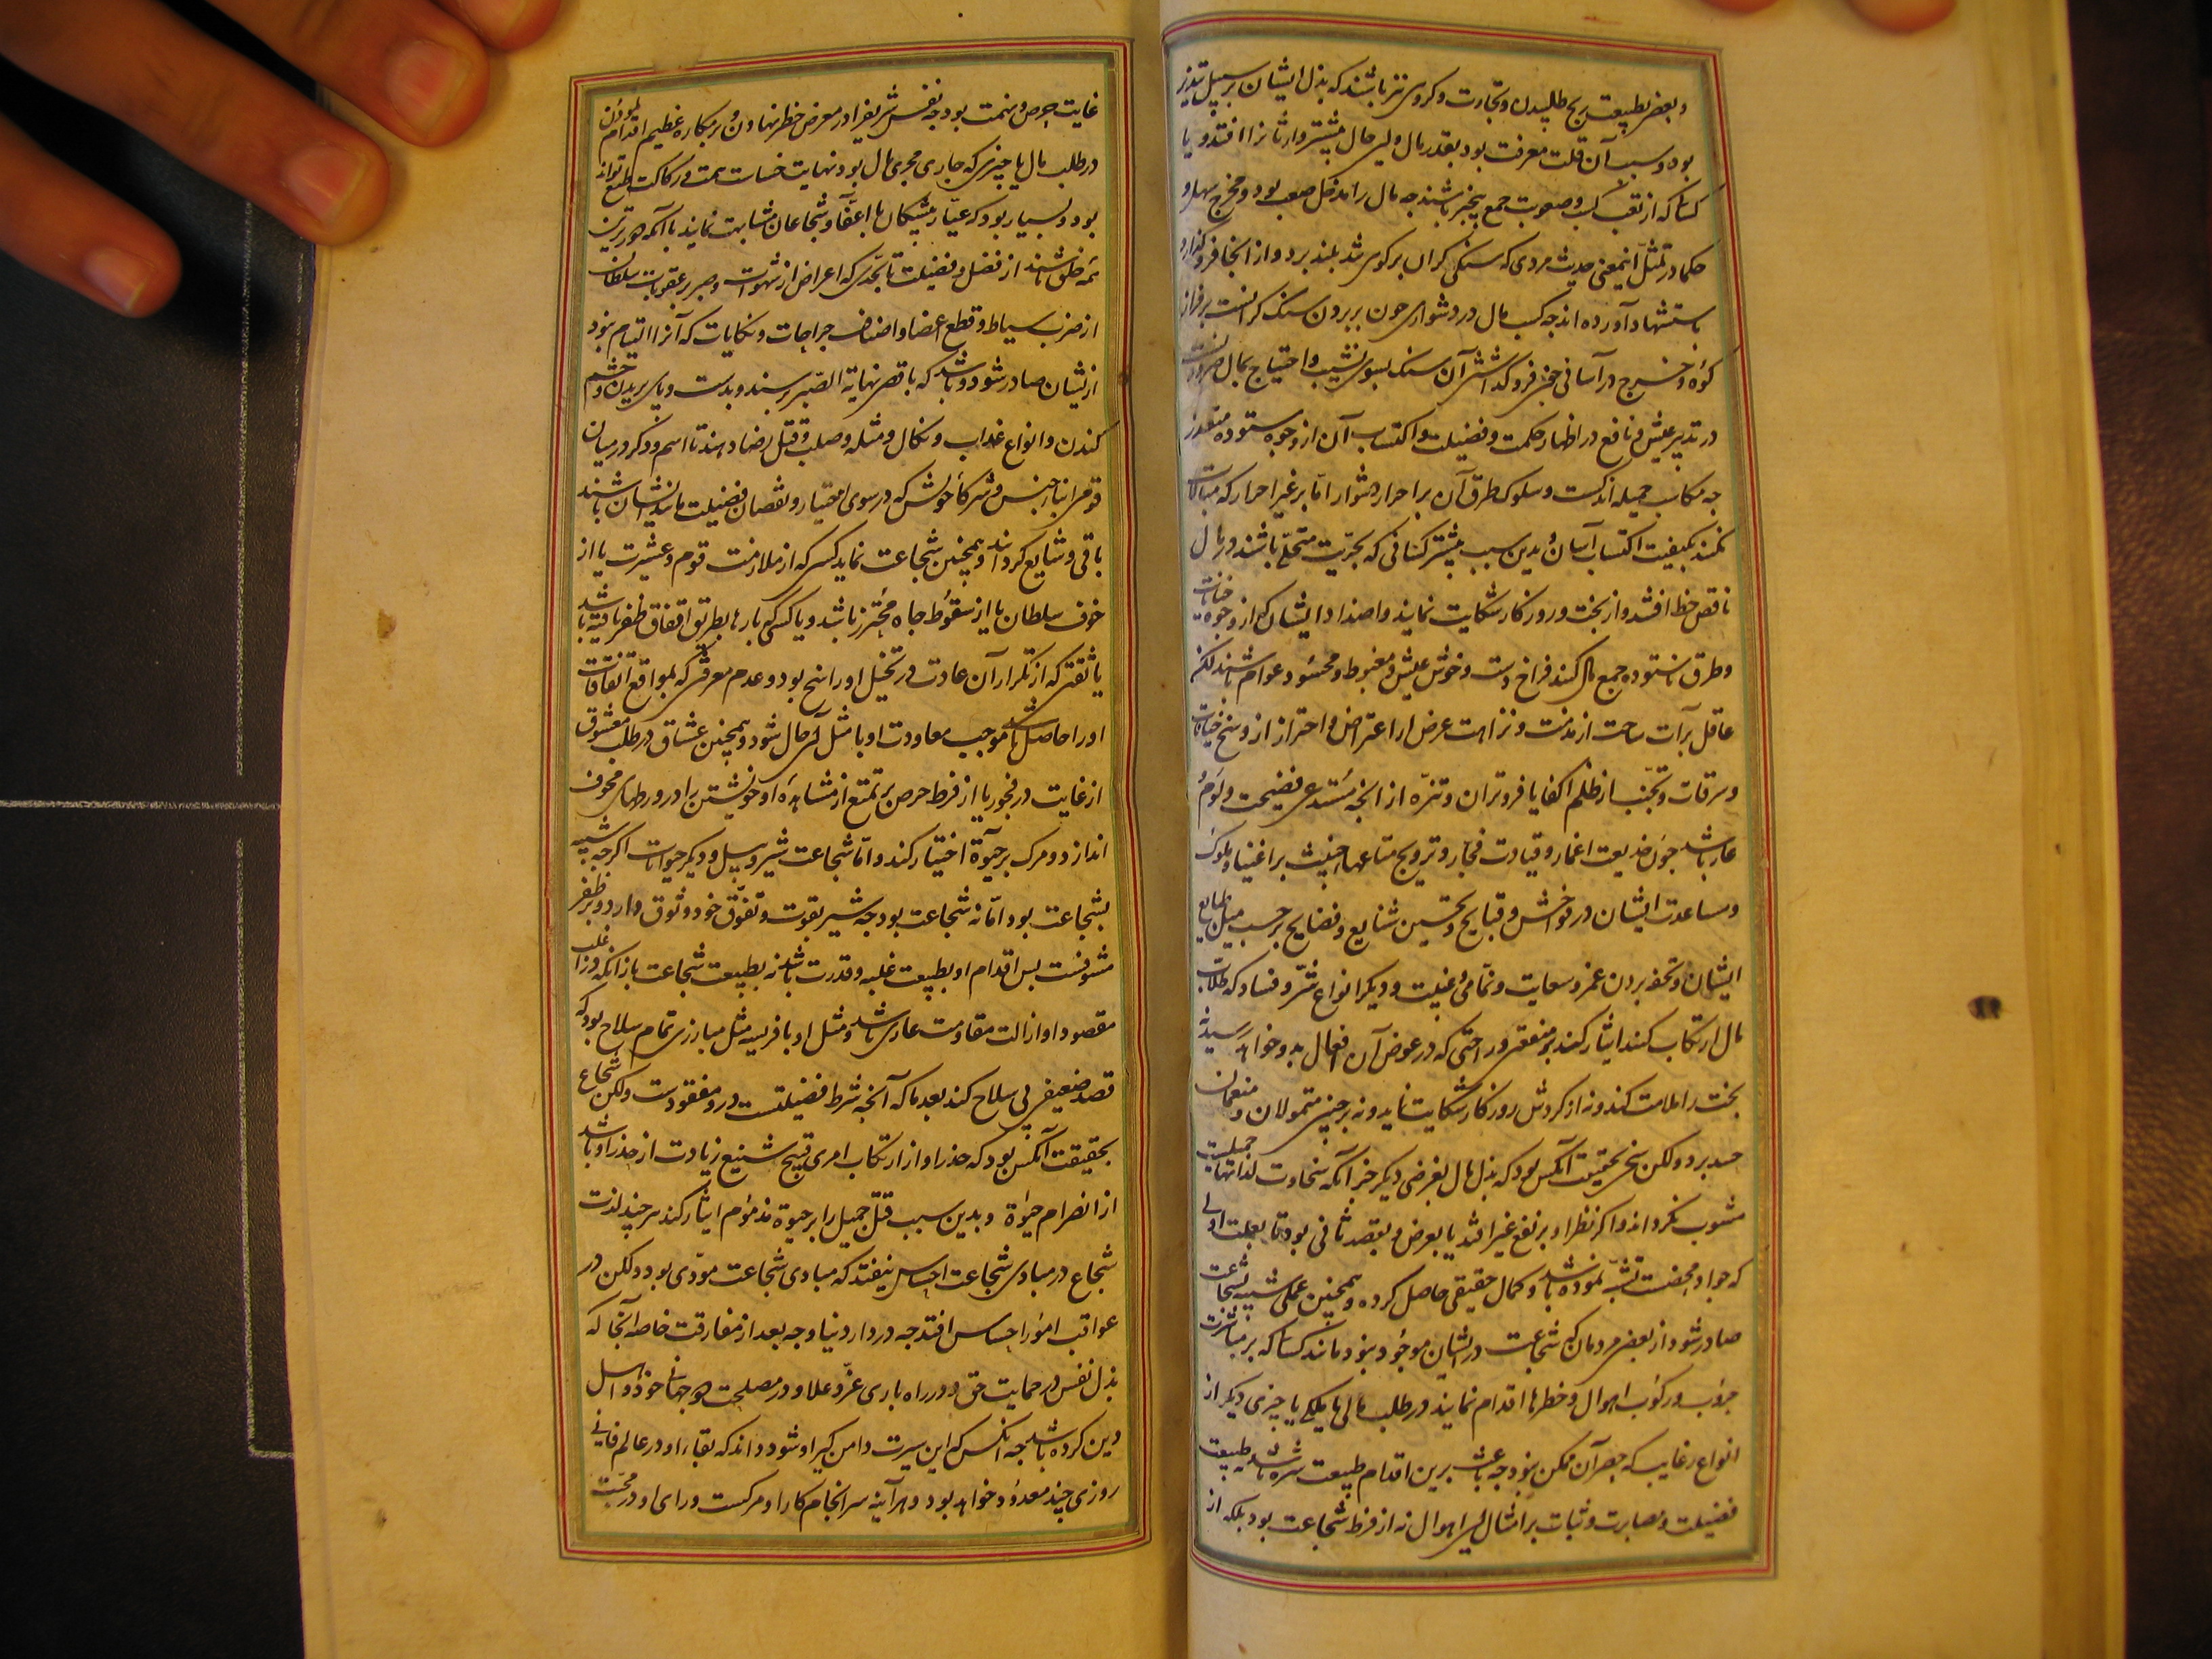 و بعضی بطبیعت ربح طلبیدن و تجارت و کروی تر باشند که بذل ایشان بر سبیل تبذیر
بود و سبب آن قلت معرفت بود بقدر مال و این حال بیشتر وارثانرا افتد و یا
کسانی که از تعب کسب و صعوبت جمع بیخبر باشند جه مال را مدخل صعب بود و مخرج سهل و
حکما در تمثل اینمعنی حدیث مردی که سنکی کران بر کوهی تند بلند برد و از انجا فرو کذارد
باستشهاد آورده اند جه کسب مال در دشواری جون بر بردن سنک کرانست بر فراز
کوه و خرج در آسانی جون فرو کذاشتن آن سنک بسوی نشیب و احتیاج بمال ضروریست
در تدبیر عیش و نافع در اظهار حکمت و فضیلت و اکتساب آن از وجوه ستوده متعذر
جه مکاسب جمیله اندکست و سلوک طرق آن بر احرار دشوار اما بر غیر احرار که مبالات
نکنند بکیفیت اکتساب آسان و بدین سبب بیشتر کسانی که بحریت متحلی باشند در مال
ناقص حظ افتند و از بخت و روزکار شکایت نمایند و اضداد ایشان که از وجوه خیانات
و طرق ناستوده جمع مال کنند فراخ دست و خوش عیش و مغبوط و محسود عوام باشند لکن
عاقل برآت ساحت از مذمت و نزاهت عرض از اعتراض و احتراز از وسخ خیانات
و سرقات و تجنب از ظلم اکفا یا فروتران و تنزه از انجه مستدعی فضیحت و لوم
عار باشد جون خدیعت اغمار و قیادت فجار و ترویج متاعهای خبیث بر اغنیا و ملوک
و مساعدت ایشان در فواحش و قبایح و تحسین شنایع و فضایح بر حسب میل طبایع
ایشان و تحفه بردن غمز و سعایت و نمامی و غیبت و دیکر انواع شر و فساد که طلاب
مال ارتکاب کنند ایثار کند بر منفعتی و راحتی که در عوض آن افعال بدو خواهد رسید نه
بخت را ملامت کند و نه از کردش روزکار شکایت نماید و نه بر جنین متمولان و منعمان
حسد برد ولکن سخی بحقیقت آنکس بود که بذل مال بغرضی دیکر جز آنکه سخاوت لذاتها جمیلست
مشوب نکرداند و اکر نظر او بر نفع غیر افتد بالعرض و بقصد ثانی بود تا بعلت اولی
که جواد محضست تشبه نموده باشد و کمال حقیقی حاصل کرده و همجنین عملی شبیه بشجاعت
صادر شود از بعضی مردمان که شجاعت در ایشان موجود نبود مانند کسانی که بر مباشرت
حروب و رکوب اهوال و خطرها اقدام نمایند در طلب مالی یا ملکی یا جیزی دیکر از
انواع رغایب که حصر آن ممکن نبود جه باعث برین اقدام طبیعت شره باشد نه طبیعت
فضیلت و مصابرت و ثبات بر امثال این اهوال نه از فرط شجاعت بود بلکه از
غایت حرص و نهمت بود جه نفس شریفرا در معرض خطر نهادن و بر مکاره عظیم اقدام نمودن
در طلب مال یا جیزی که جاری مجری مال بود نهایت خساست همت و رکاکت طبع تواند
بود و بسیار بود که عیار بیشکال با اعفا و شجاعان مشابهت نمایند با آنکه دورترین
همه خلق باشند از فضل و فضیلت تا بحدی که اعراض از شهوات و صبر بر عقوبات سلطان
از ضرب سیاط و قطع اعضا و اصناف جراحات و نکایات که آنرا التیام نبود
از یشان صادر شود و باشد که باقصی نهایة الصبر برسند و بدست و پای بریدن و چشم
کندن و انواع عذاب و نکال و مثله و صلب و قتل رضا دهند تا اسم و ذکر در میان
قومی از ابنا جنس و شرکا خویش که در سوی اختیار و نقصان فضیلت مانند ایشان باشند
باقی و شایع کردانند و همجنین شجاعت نماید کسی که از ملامت قوم و عشیرت یا از
خوف سلطان یا از سقوط جاه محترز باشد و یا کسی که بارها بطریق اتفاق ظفر یافته باشد
یا ثقتی که از تکرار آن عادت در تخیل او راسخ بود و عدم معرفتی که بمواقع اتفاقات
اورا حاصل باشد موجب معاودت او با مثل آن حال شود و همجنین عشاق در طلب معشوق
از غایت در فجور یا از فرط حرص بر تمتع از مشاهده او خویشتن را در ورطهای مخوف
اندازد و مرک بر حیوة اختیار کند و اما شجاعت شیر و پیل و دیکر حیوانات اکرجه شبیه
بشجاعت بود اما نه شجاعت بود جه شیر بقوت و تفوق خود وثوق دارد و بر ظفر
مشوفست بس اقدام او بطبیعت غلبه و قدرت باشد نه بطبیعت شجاعت باز انکه در اغلب
مقصود او از الت مقاومت عاری باشد و مثل او با فریسه مثل مبارزی تمام سلاح بود که
قصد ضعیفی بی سلاح کند بعد ما که آنجه شرط فضیلتست درو مفقودست ولکن شجاع
بحقیقت آنکس بود که حذر او از ارتکاب امری قبیح شنیع زیادت از حذر او باشد
از انصرام حیوة و بدین سبب قتل جمیل را بر حیوة مذموم ایثار کند هر جند لذت
شجاع در مبادی شجاعت احساس نیفتد که مبادی شجاعت موذی بود ولکن در
عواقب امور احساس افتد جه در دار دنیا و جه بعد از مفارقت خاصه آنجا که
بذل نفس در حمایت حق و در راه باری عز و علا و در مصلحت دو جهانی خود و اهل
دین کرده باشد جه انکس که این سیرت دامن کیر او شود داند که بقاء او در عالم فانی
روزی چند معدود خواهد بود و هر آینه سرانجام کار او مرکست و رای او در محبت